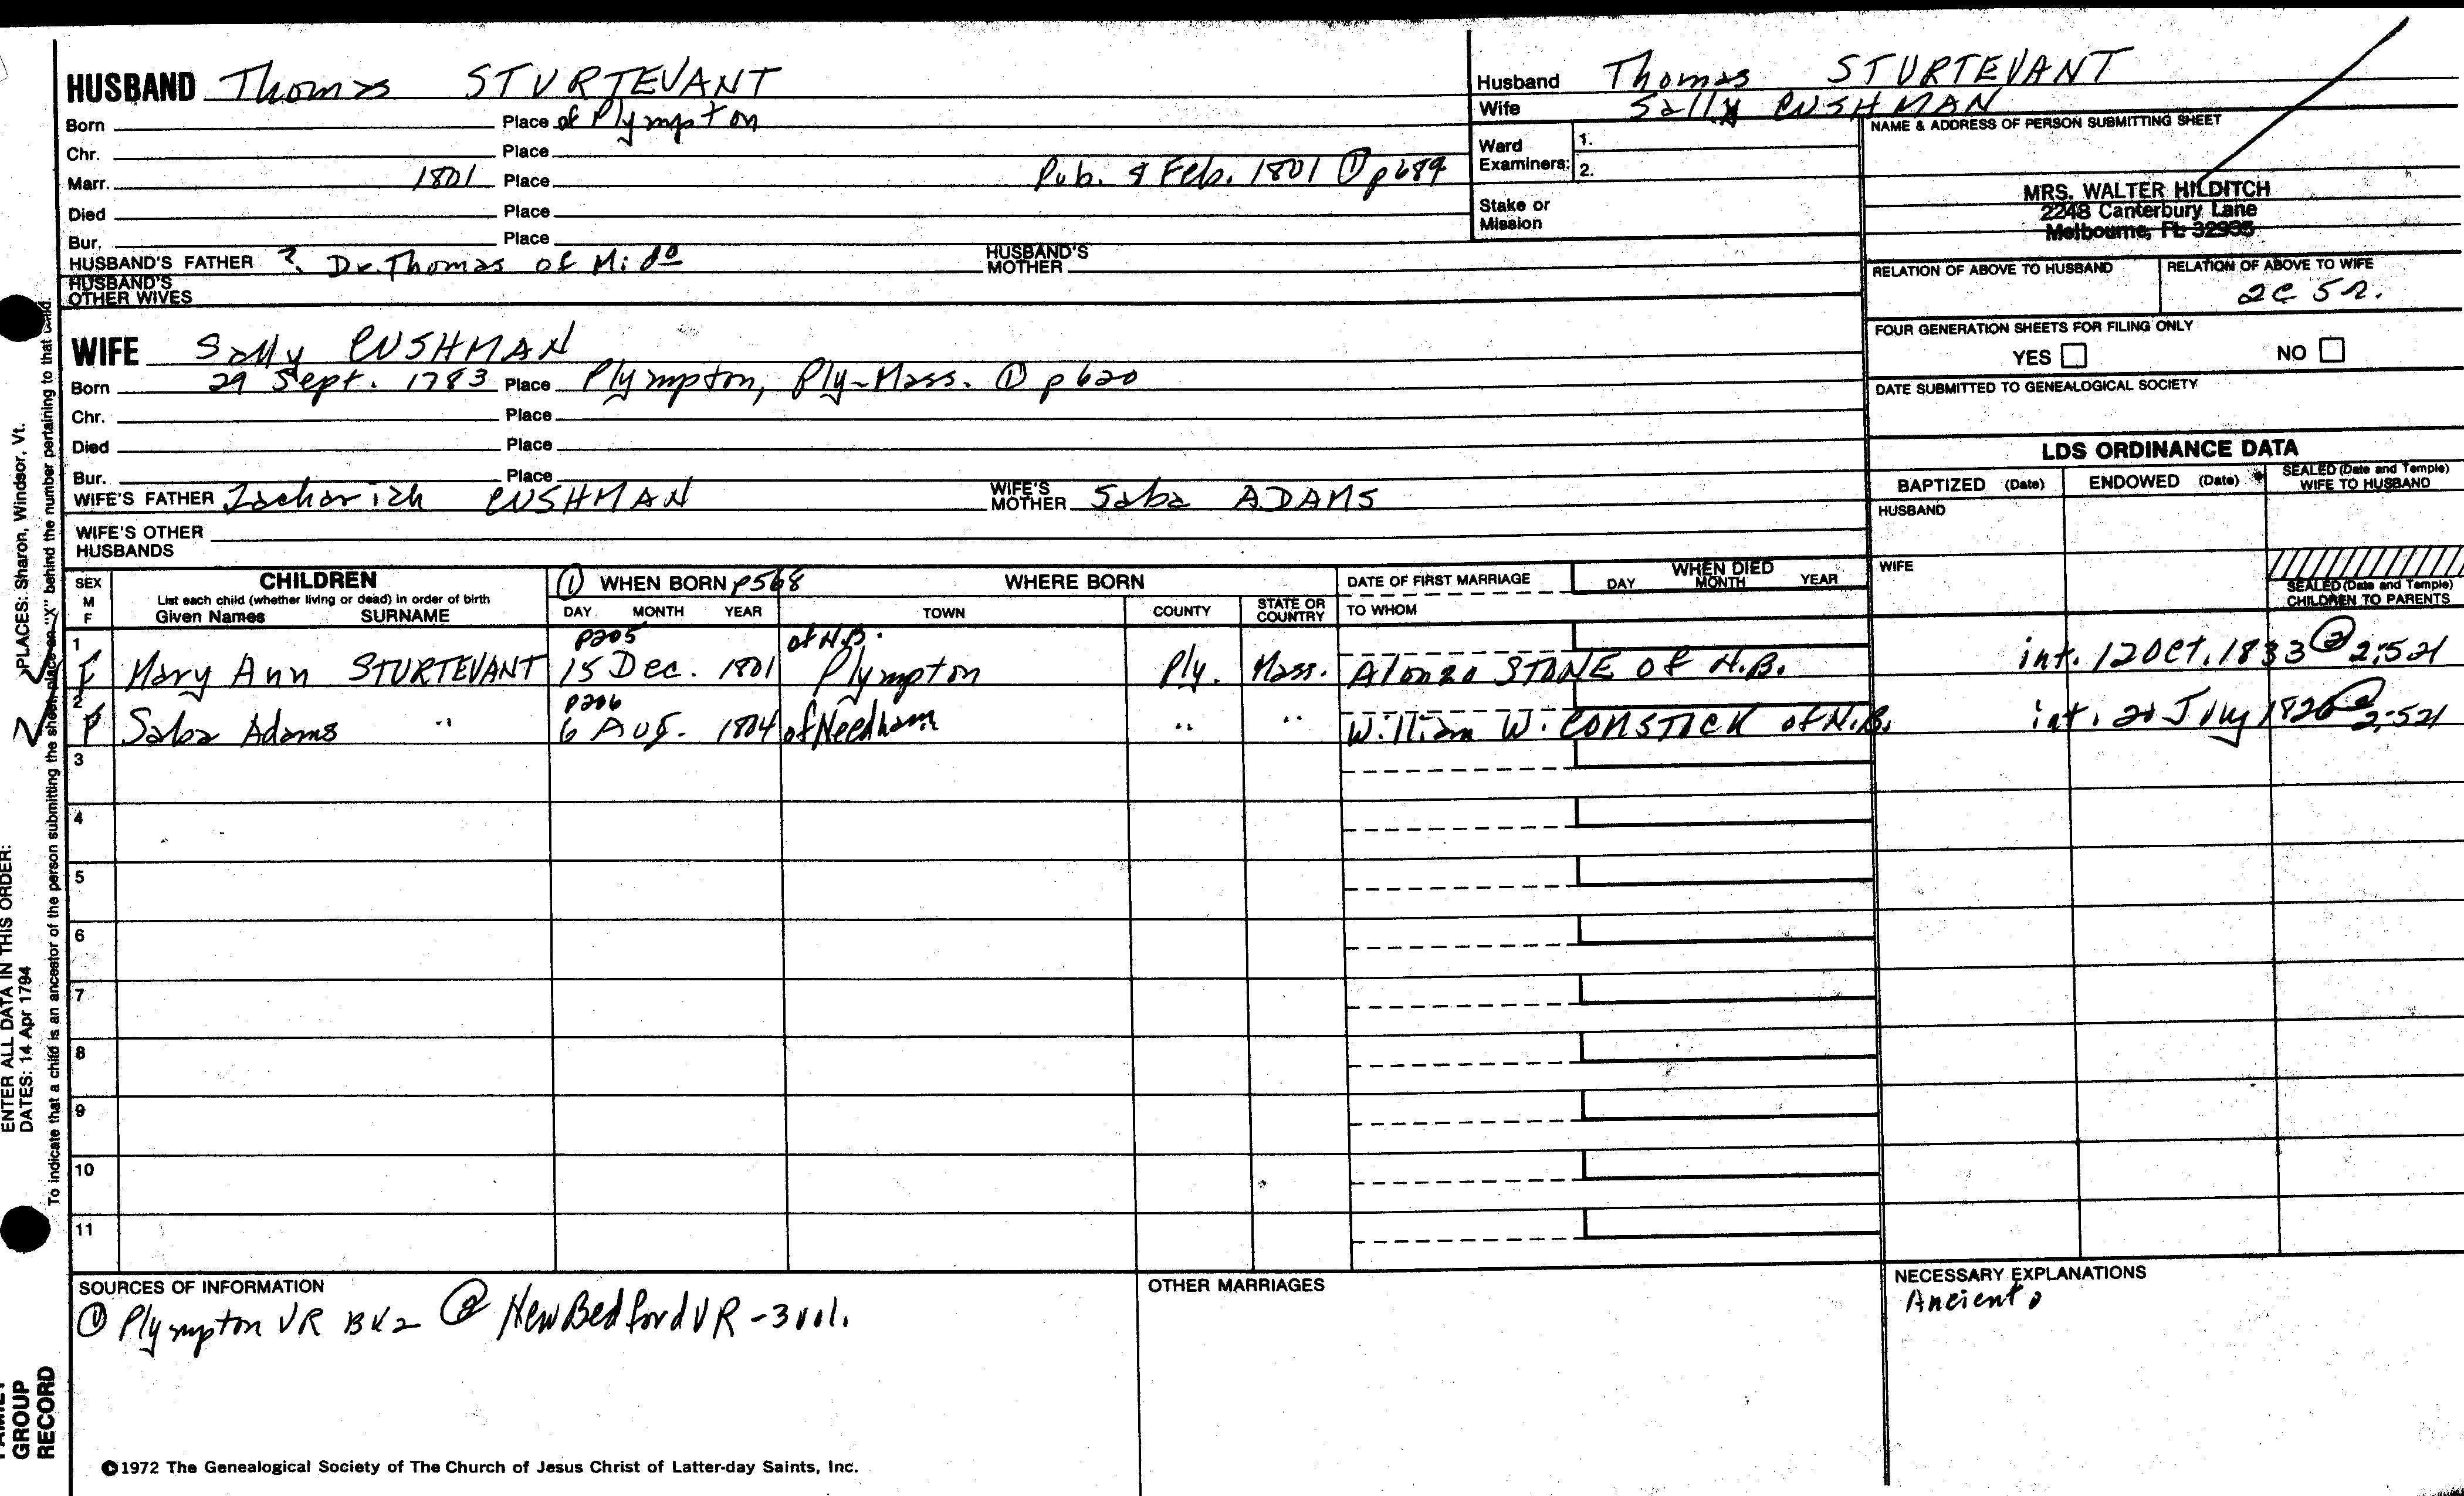 HUSBAND Thomas STURTEVANT
Born Place of Plympton
Chr. Place
Marr. 1801 Place Pub. 8 Feb. 1801 ① p689
Died Place
Bur. Place
HUSBAND'S FATHER ? Dr. Thomas of Mido HUSBAND'S MOTHER
HUSBAND'S OTHER WIVES
Husband Thomas STURTEVANT
Wife Sally CUSHMAN
Ward Examiners: 1.
2.
Stake or Mission
NAME & ADDRESS OF PERSON SUBMITTING SHEET
MRS. WALTER HILDITCH
2248 Canterbury Lane
Melbourne, FL 32935
RELATION OF ABOVE TO HUSBAND RELATION OF ABOVE TO WIFE
2C 5R.
FOUR GENERATION SHEETS FOR FILING ONLY
YES NO
DATE SUBMITTED TO GENEALOGICAL SOCIETY
WIFE Sally CUSHMAN
Born 29 Sept. 1783 Place Plympton, Ply-Mass. ① p620
Chr. Place
Died Place
Bur. Place
WIFE'S FATHER Zachariah CUSHMAN WIFE'S MOTHER Saba ADAMS
WIFE'S OTHER HUSBANDS
LDS ORDINANCE DATA
BAPTIZED (Date) ENDOWED (Date) SEALED (Date and Temple) WIFE TO HUSBAND
HUSBAND
WIFE
SEALED (Date and Temple) CHILDREN TO PARENTS
SEX M F
CHILDREN
List each child (whether living or dead) in order of birth
Given Names SURNAME
① WHEN BORN p568
DAY MONTH YEAR
WHERE BORN
TOWN COUNTY STATE OR COUNTRY
DATE OF FIRST MARRIAGE
TO WHOM
WHEN DIED
DAY MONTH YEAR
p205 of N.B.
1 F Mary Ann STURTEVANT 15 Dec. 1801 Plympton Ply. Mass. Alonzo STONE of N.B. int. 12 Oct. 1833 ② 2:521
p206
2 F Saba Adams " 6 Aug. 1804 of Needham " " William W. COMSTOCK of N.B. int. 20 July 1826 ② 2:521
3
4
5
6
7
8
9
10
11
SOURCES OF INFORMATION
① Plympton VR BK2 ② New Bedford VR - 3 vol.
OTHER MARRIAGES
NECESSARY EXPLANATIONS
Ancient
©1972 The Genealogical Society of The Church of Jesus Christ of Latter-day Saints, Inc.
ENTER ALL DATA IN THIS ORDER:
DATES: 14 Apr 1794 PLACES: Sharon, Windsor, Vt.
To indicate that a child is an ancestor of the person submitting the sheet, place an "X" behind the number pertaining to that child.
FAMILY
GROUP
RECORD